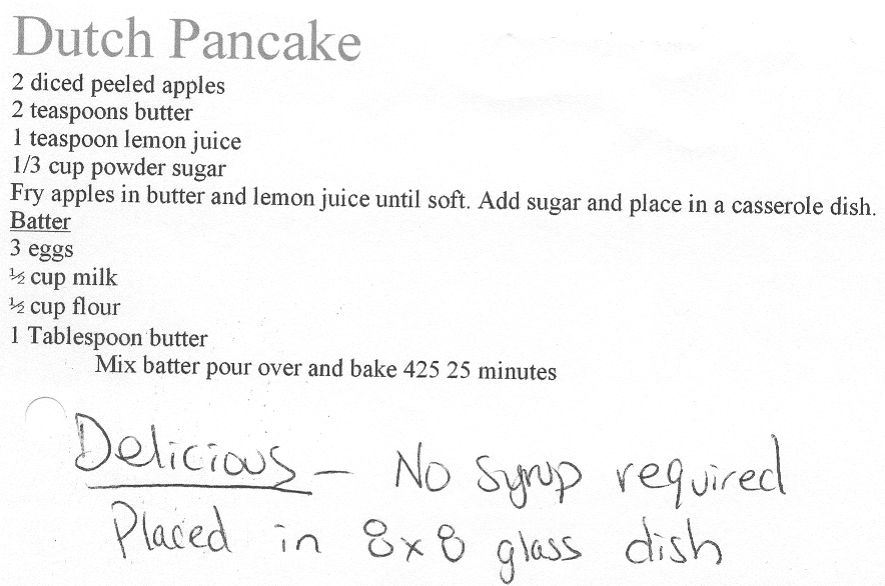 Dutch Pancake
2 diced peeled apples
2 teaspoons butter
1 teaspoon lemon juice
1/3 cup powder sugar
Fry apples in butter and lemon juice until soft. Add sugar and place in a casserole dish.
Batter
3 eggs
½ cup milk
½ cup flour
1 Tablespoon butter
Mix batter pour over and bake 425 25 minutes
Delicious - No syrup required
Placed in 8x8 glass dish